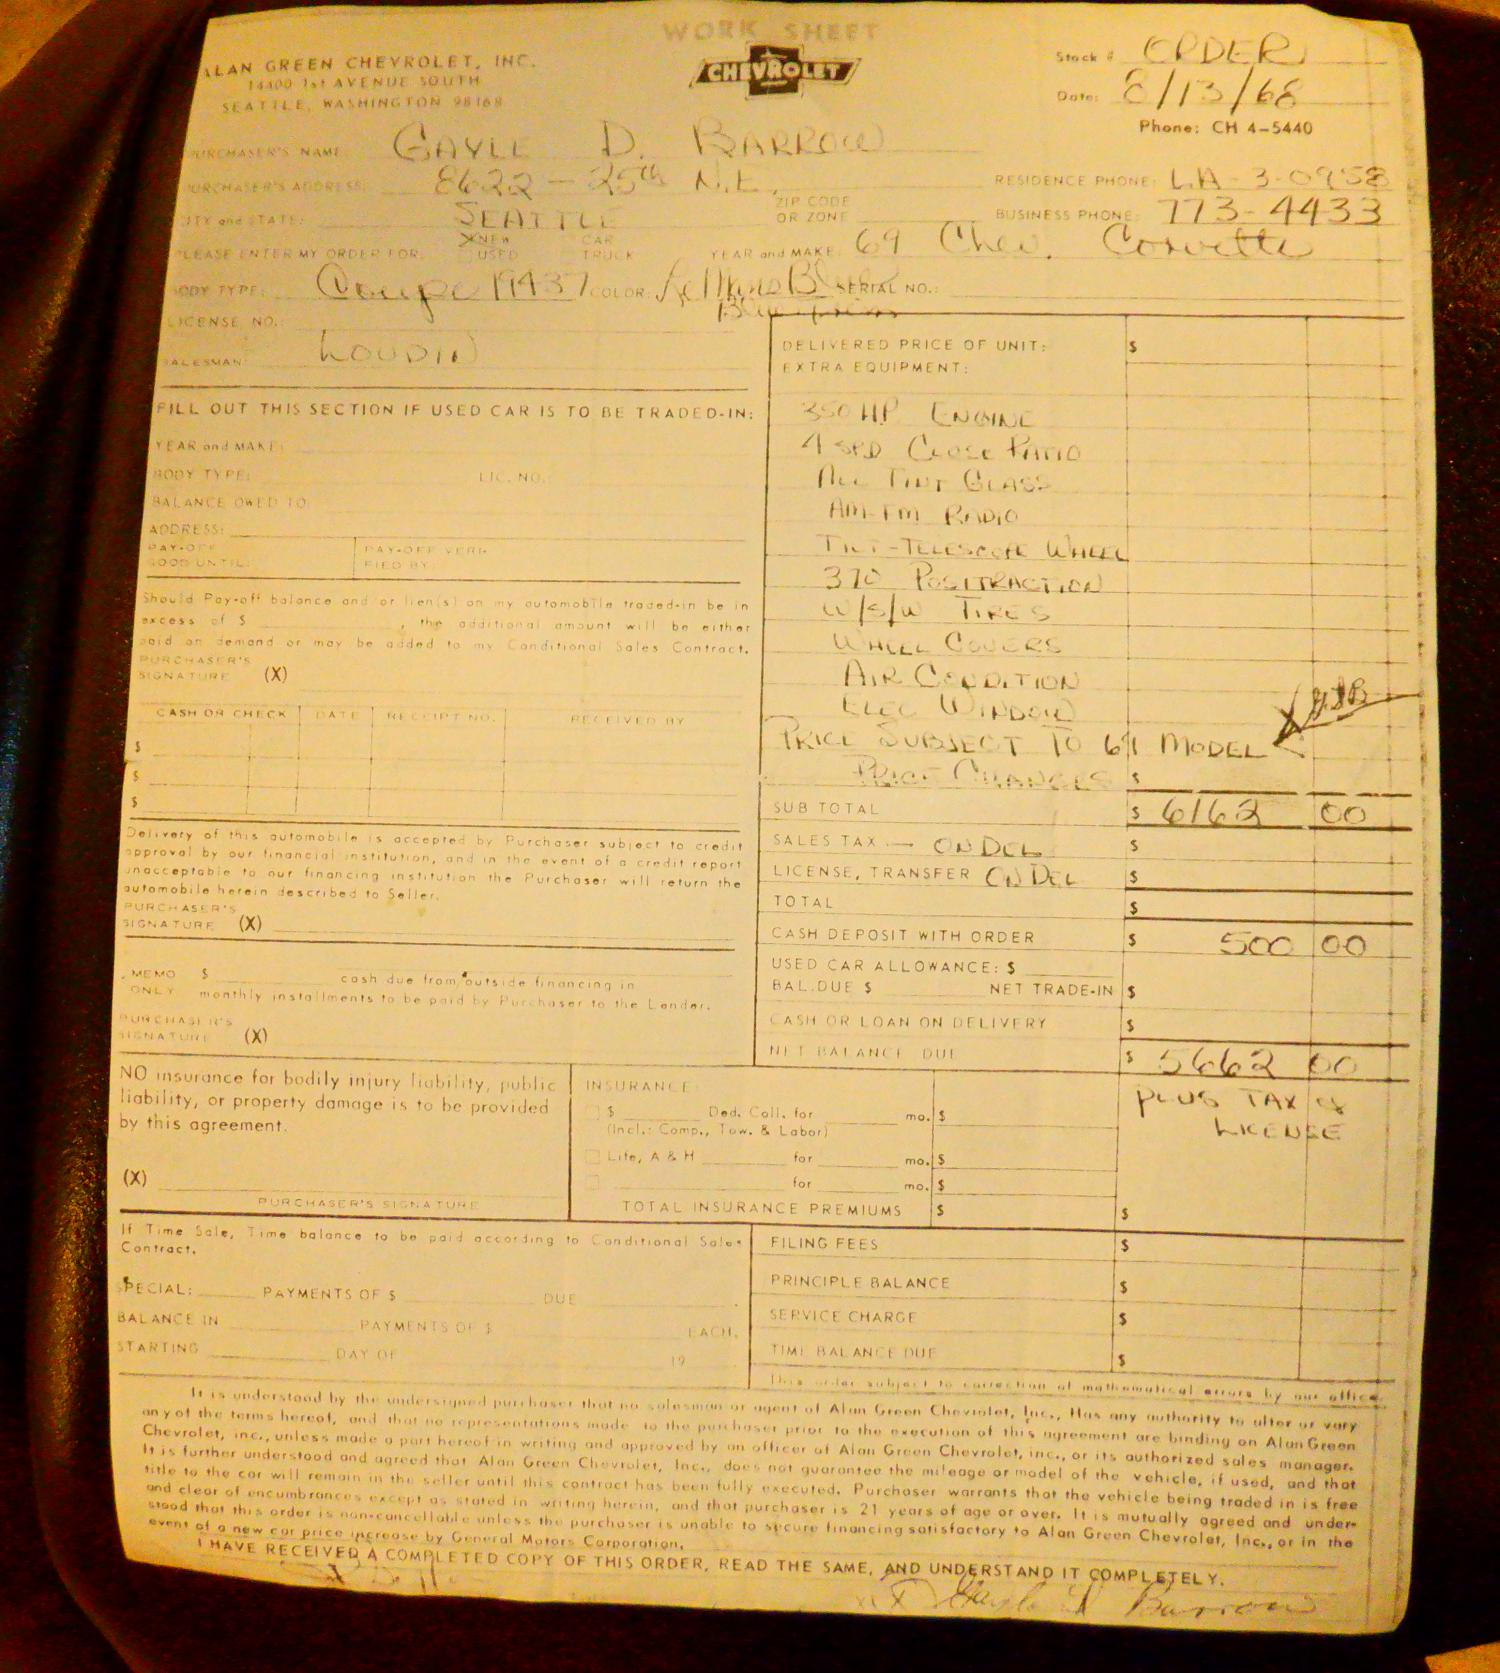 WORK SHEET
ALAN GREEN CHEVROLET, INC.
14400 1st AVENUE SOUTH
SEATTLE, WASHINGTON 98168
CHEVROLET
Stock # ORDER
Date: 8/13/68
Phone: CH 4-5440
PURCHASER'S NAME: GAYLE D. BARROW
PURCHASER'S ADDRESS: 8622 - 25th N.E. RESIDENCE PHONE: LA-3-0958
CITY and STATE: SEATTLE ZIP CODE OR ZONE BUSINESS PHONE: 773-4433
PLEASE ENTER MY ORDER FOR: X NEW USED CAR TRUCK YEAR and MAKE: 69 Chev. Corvette
BODY TYPE: Coupe 19437 COLOR: LeMans Blue SERIAL NO.:
LICENSE NO.:
SALESMAN: LOUDIN
FILL OUT THIS SECTION IF USED CAR IS TO BE TRADED-IN:
YEAR and MAKE:
BODY TYPE: LIC. NO.
BALANCE OWED TO:
ADDRESS:
PAY-OFF GOOD UNTIL: PAY-OFF VERIFIED BY:
Should Pay-off balance and or lien(s) on my automobile traded-in be in
excess of $ , the additional amount will be either
paid on demand or may be added to my Conditional Sales Contract.
PURCHASER'S
SIGNATURE (X)
CASH OR CHECK DATE RECEIPT NO. RECEIVED BY
$
$
$
Delivery of this automobile is accepted by Purchaser subject to credit
approval by our financial institution, and in the event of a credit report
unacceptable to our financing institution the Purchaser will return the
automobile herein described to Seller.
PURCHASER'S
SIGNATURE (X)
MEMO $ cash due from outside financing in
ONLY monthly installments to be paid by Purchaser to the Lender.
PURCHASER'S
SIGNATURE (X)
DELIVERED PRICE OF UNIT: $
EXTRA EQUIPMENT:
350 HP ENGINE
4 SPD CLOSE RATIO
ALL TINT GLASS
AM-FM RADIO
TILT-TELESCOPE WHEEL
370 POSITRACTION
W/S/W TIRES
WHEEL COVERS
AIR CONDITION
ELEC WINDOW
PRICE SUBJECT TO 69 MODEL
PRICE CHANGES $
SUB TOTAL $ 6162 00
SALES TAX — ON DEL $
LICENSE, TRANSFER ON DEL $
TOTAL $
CASH DEPOSIT WITH ORDER $ 500 00
USED CAR ALLOWANCE: $
BAL. DUE $ NET TRADE-IN $
CASH OR LOAN ON DELIVERY $
NET BALANCE DUE $ 5662 00
PLUS TAX &
LICENSE
NO insurance for bodily injury liability, public
liability, or property damage is to be provided
by this agreement.
(X)
PURCHASER'S SIGNATURE
INSURANCE:
$ Ded. Coll. for mo. $
(Incl.: Comp., Tow. & Labor)
Life, A & H for mo. $
for mo. $
TOTAL INSURANCE PREMIUMS $ $
If Time Sale, Time balance to be paid according to Conditional Sales
Contract.
SPECIAL: PAYMENTS OF $ DUE
BALANCE IN PAYMENTS OF $ EACH,
STARTING DAY OF 19
FILING FEES $
PRINCIPLE BALANCE $
SERVICE CHARGE $
TIME BALANCE DUE $
This order subject to correction of mathematical errors by our office.
It is understood by the undersigned purchaser that no salesman or agent of Alan Green Chevrolet, Inc., Has any authority to alter or vary
any of the terms hereof, and that no representations made to the purchaser prior to the execution of this agreement are binding on Alan Green
Chevrolet, inc., unless made a part hereof in writing and approved by an officer of Alan Green Chevrolet, inc., or its authorized sales manager.
It is further understood and agreed that Alan Green Chevrolet, Inc., does not guarantee the mileage or model of the vehicle, if used, and that
title to the car will remain in the seller until this contract has been fully executed. Purchaser warrants that the vehicle being traded in is free
and clear of encumbrances except as stated in writing herein, and that purchaser is 21 years of age or over. It is mutually agreed and under-
stood that this order is non-cancellable unless the purchaser is unable to secure financing satisfactory to Alan Green Chevrolet, Inc., or in the
event of a new car price increase by General Motors Corporation.
I HAVE RECEIVED A COMPLETED COPY OF THIS ORDER, READ THE SAME, AND UNDERSTAND IT COMPLETELY.
(X) Gayle D Barrow